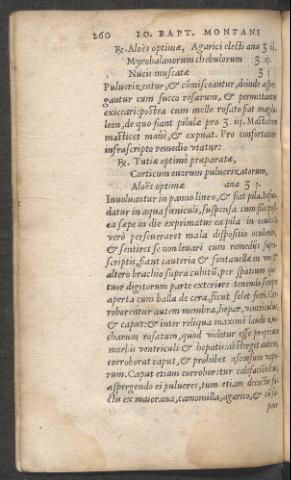 260 IO. BAPT. MONTANI
℞. Aloës optimæ, Agarici electi ana ʒ ij,
Myrobalanorum chebulorum ʒ ij.
Nucis muscatæ ʒ j.
Puluerizentur, & cōmisceantur, deinde asper
gantur cum succo rosarum, & permittantur
exiccari: postea cum melle rosato fiat magda
leon, de quo fiant pilulæ pro ʒ iij. Mastichen
masticet manè, & expuat. Pro confortatione
infrascripto remedio vtatur:
℞. Tutiæ optimè præparatæ,
Corticum ouorum puluerizatorum,
Aloës optimæ ana ʒ j.
Inuoluantur in panno lineo, & fiat pila.
datur in aqua fœniculi, suspensa cum filo
ea sæpe in die exprimatur ea pila in oculos.
verò perseueraret mala dispositio oculorum,
& sentiret se non leuari cum remedijs supra
scriptis, fiant cauteria & fontanellæ in
altero brachio supra cubitū, per spatium qua
tuor digitorum parte exteriore tenendo semper
aperta cum balla de cera, sicut solet fieri. Cor
roborentur autem membra, hepar, ventriculus,
& caput: & inter reliqua maximè laudo
charum rosatum, quod videtur esse proprium
morbis ventriculi & hepatis: abstergit autem,
corroborat caput, & prohibet ascensum vapo
rum. Caput etiam corroboretur calefaciendo,
aspergendo ei pulueres, tum etiam
ctū ex maiorana, camomilla, agarico, &